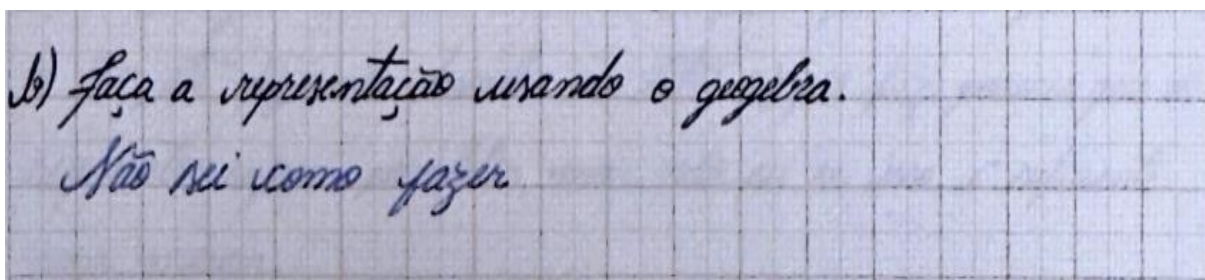 b) Faça a representação usando o geogebra.
Não sei como fazer